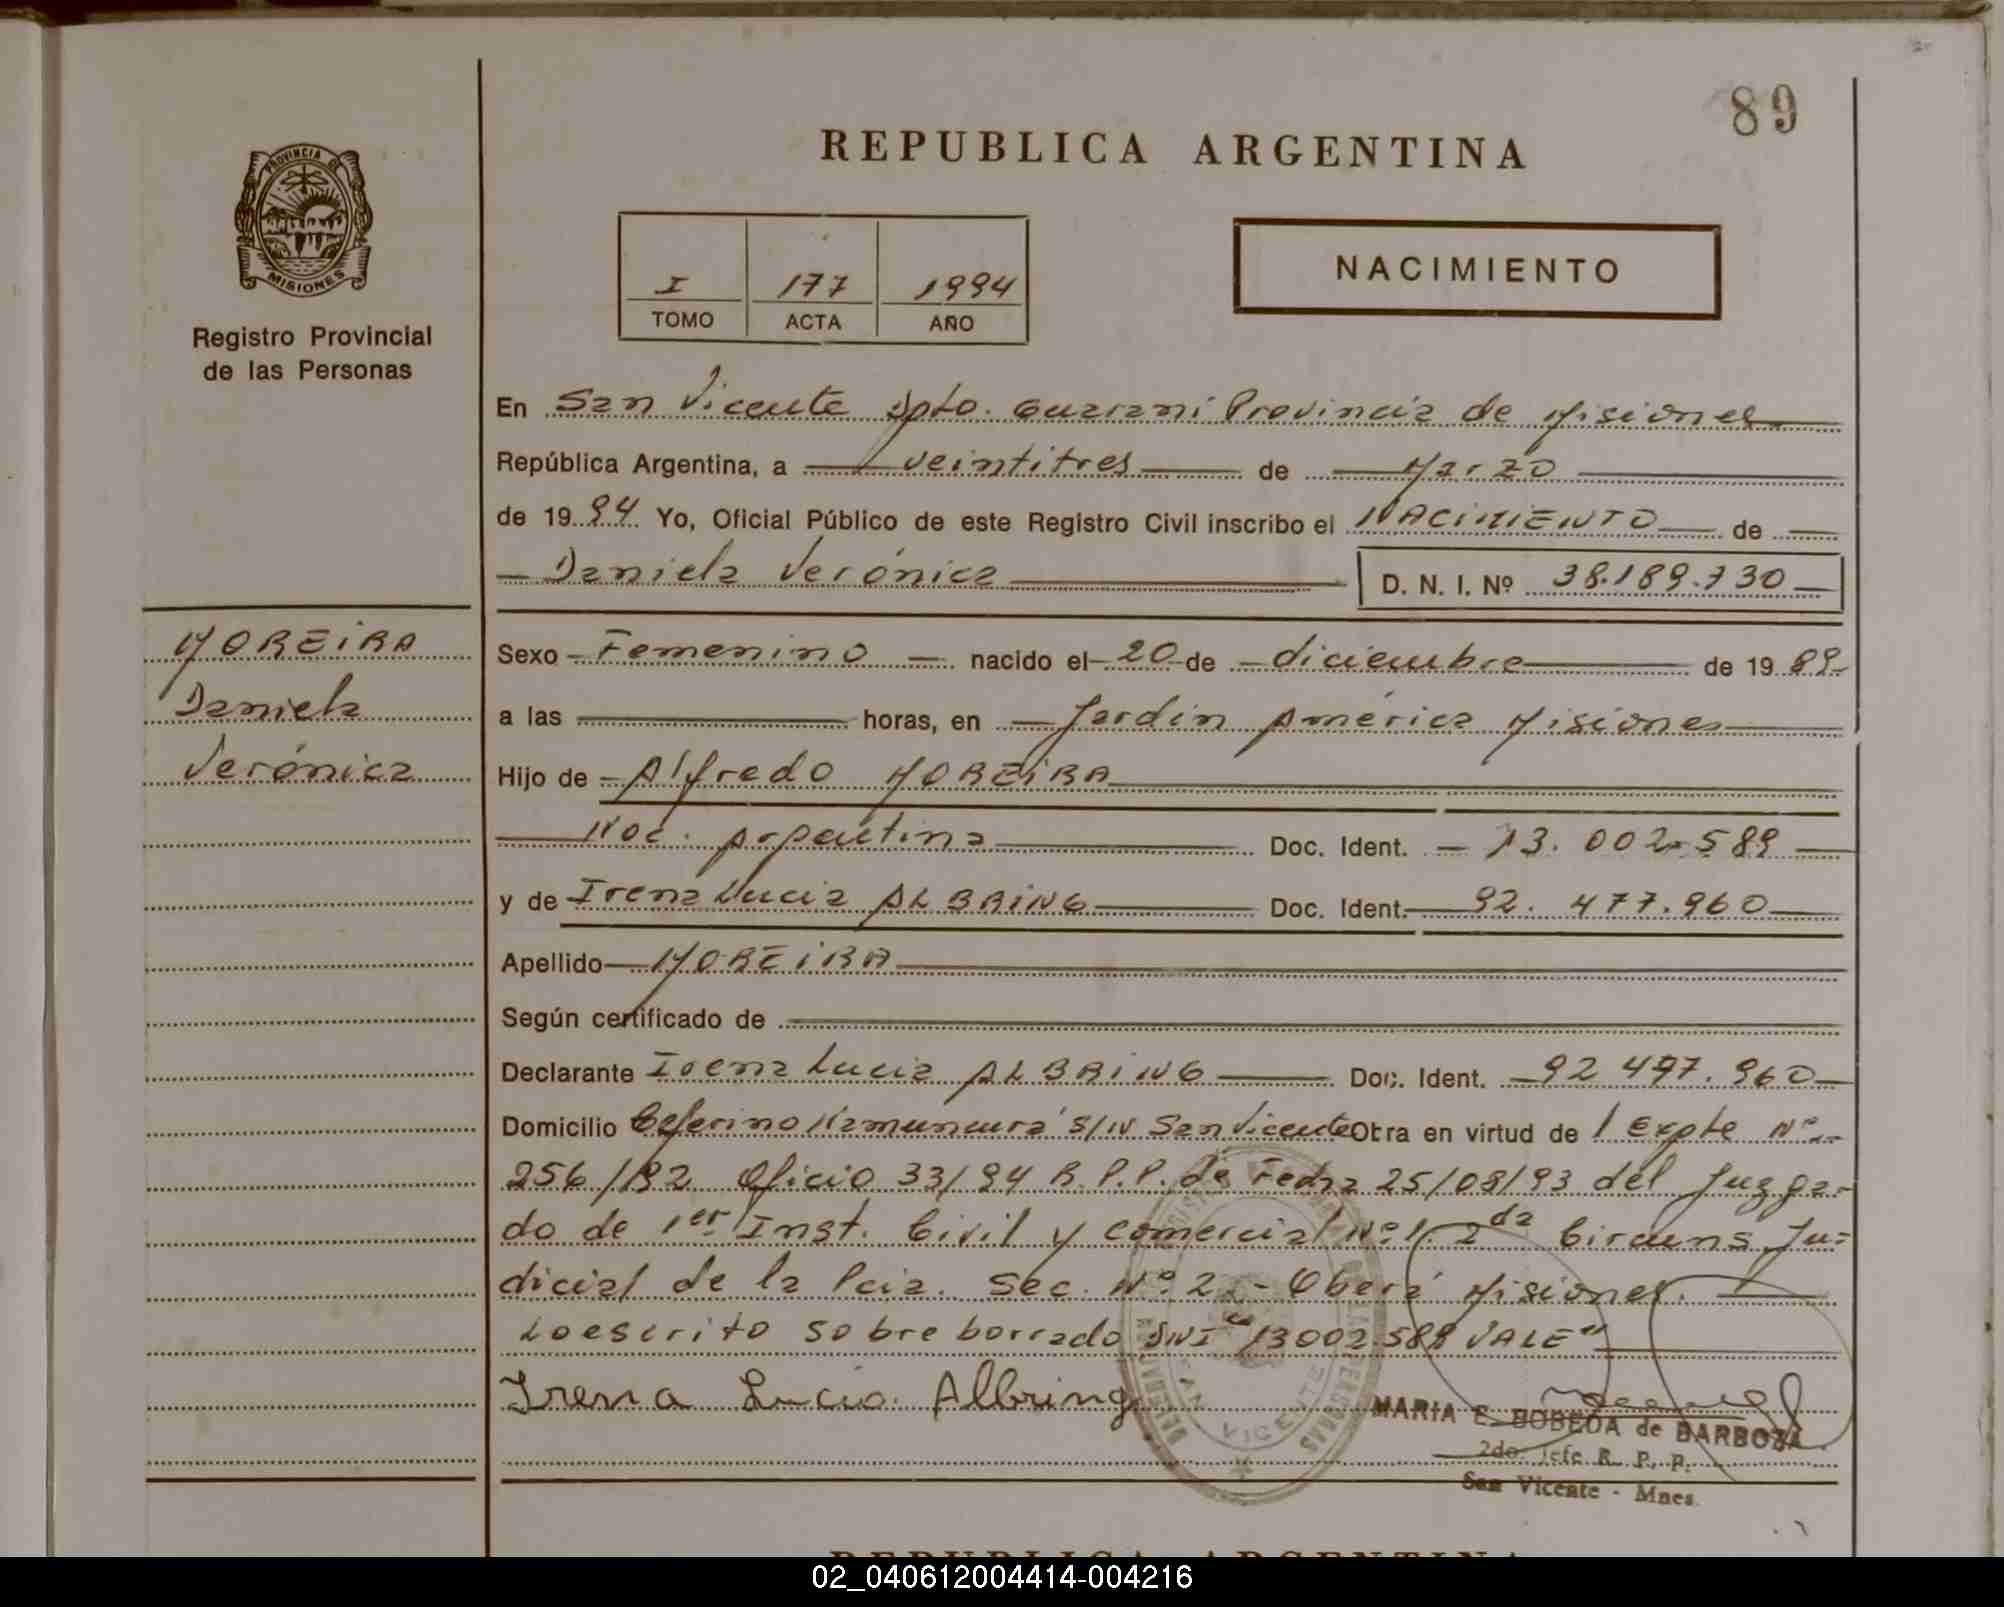 89
REPUBLICA ARGENTINA
PROVINCIA DE
MISIONES
Registro Provincial
de las Personas
I 177 1994
TOMO ACTA AÑO
NACIMIENTO
En San Vicente Dpto. Guaraní Provincia de Misiones
República Argentina, a veintitres de Marzo
de 1994 Yo, Oficial Público de este Registro Civil inscribo el NACIMIENTO de
Daniela Verónica D. N. I. Nº 38.189.730
MOREIRA
Daniela
Verónica
Sexo Femenino nacido el 20 de diciembre de 1989
a las horas, en Jardín América Misiones
Hijo de Alfredo MOREIRA
Nac. Argentina Doc. Ident. 13.002.589
y de Irena Lucia ALBRING Doc. Ident. 92.477.960
Apellido MOREIRA
Según certificado de
Declarante Irena Lucia ALBRING Doc. Ident. 92 477.960
Domicilio Ceferino Namuncurá S/N San Vicente Obra en virtud de Expte Nº
256/92 Oficio 33/94 R.P.P. de Fecha 25/08/93 del Juzga-
do de 1er Inst. Civil y Comercial Nº 1 2da Circuns. Ju=
dicial de la Pcia. Sec. Nº 2 - Oberá Misiones.
Lo escrito sobre borrado DNI "13002.589 VALE"
Irena Lucia Albring
SAN VICENTE
MARIA E. BOBEDA de BARBOZA
2do. Jefe R. P. P.
San Vicente - Mnes.
REPUBLICA ARGENTINA
02_040612004414-004216